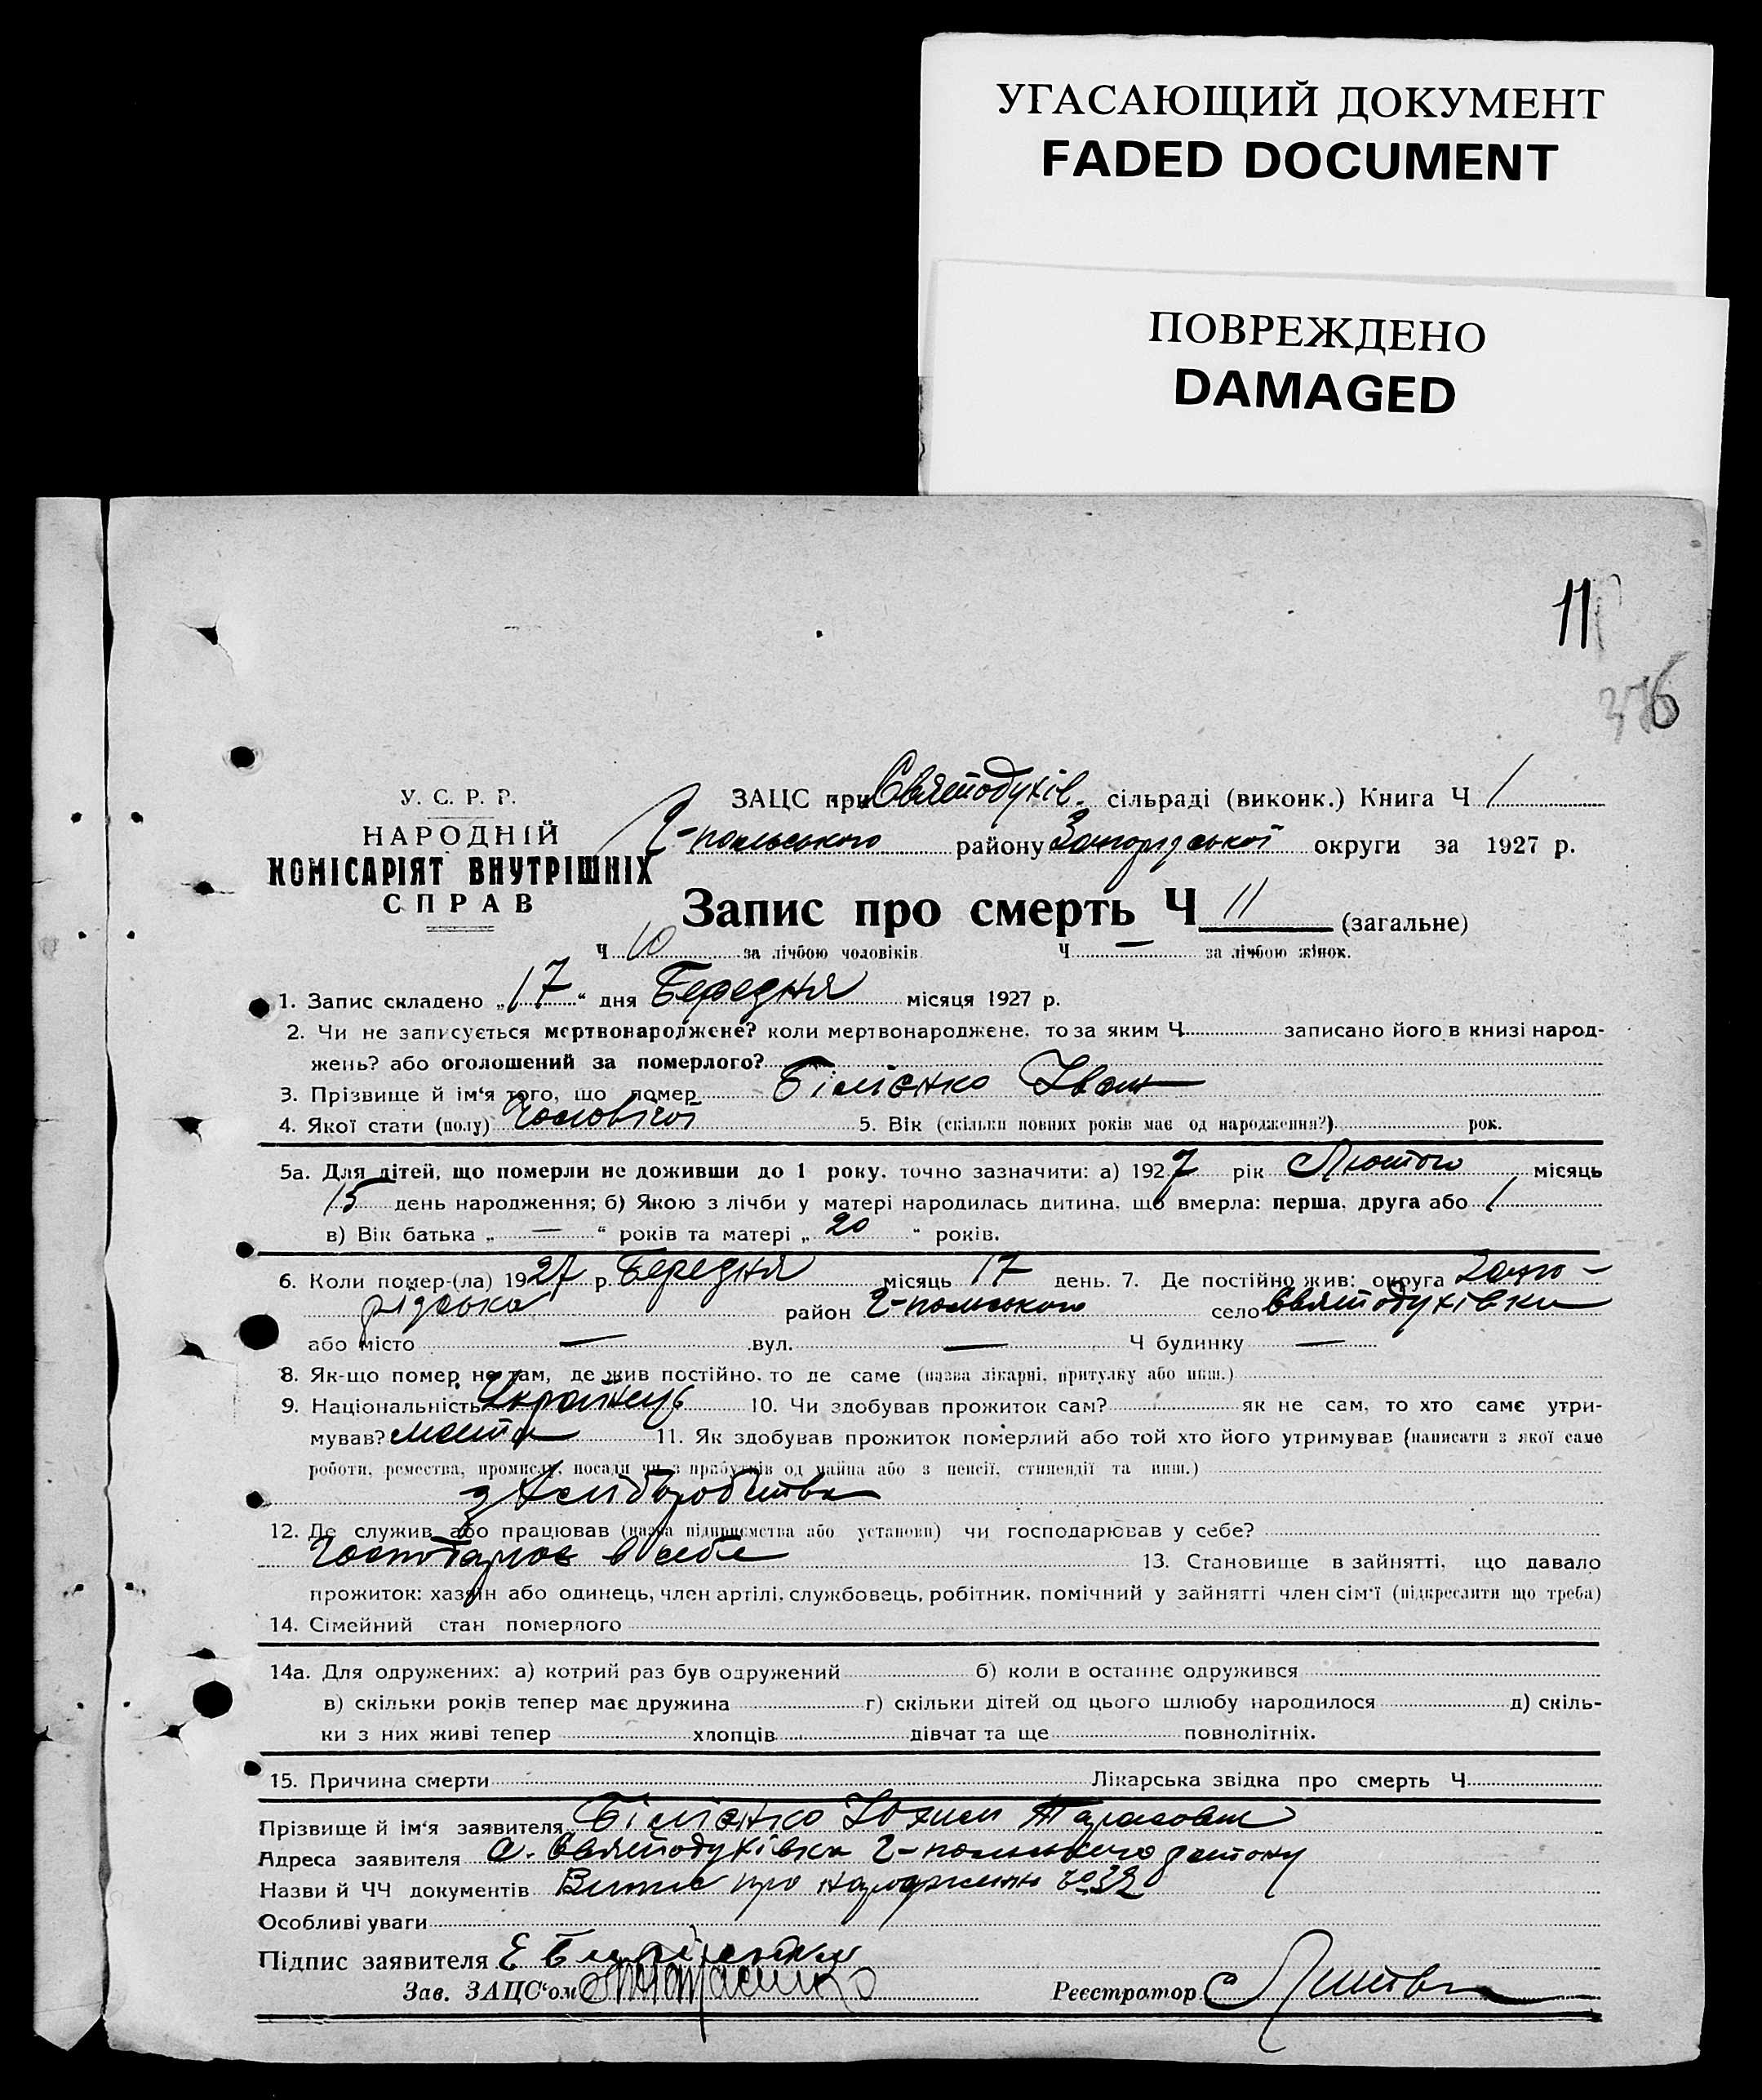 УГАСАЮЩИЙ ДОКУМЕНТ
FADED DOCUMENT
ПОВРЕЖДЕНО
DAMAGED
11
376
У. С. Р. Р.
НАРОДНІЙ
КОМІСАРІЯТ ВНУТРІШНІХ
СПРАВ
ЗАЦС при Святодухів. сільраді (виконк.) Книга Ч 1
Г-польського району Запорізської округи за 1927 р.
Запис про смерть Ч 11 (загальне)
Ч 10 за лічбою чоловіків. Ч — за лічбою жінок.
1. Запис складено „17“ дня Березня місяця 1927 р.
2. Чи не записується мертвонароджене? коли мертвонароджене, то за яким Ч записано його в книзі народ-
жень? або оголошений за померлого?
3. Прізвище й ім‘я того, що помер Біліэнко Іван
4. Якої стати (полу) Чоловічої 5. Вік (скільки повних років має од народження?) рок.
5а. Для дітей, що померли не доживши до 1 року, точно зазначити: а) 1927 рік Лютого місяць
15 день народження; б) Якою з лічби у матері народилась дитина, що вмерла: перша, друга або 1
в) Вік батька „ — “ років та матері „ 20 “ років.
6. Коли помер-(ла) 1927 р. Березня місяць 17 день. 7. Де постійно жив: округа Запо-
різська район Г-польського село Святодухівки
або місто — вул. — Ч будинку —
8. Як-що помер не там, де жив постійно, то де саме (назва лікарні, притулку або инш.)
9. Національність Українець 10. Чи здобував прожиток сам? як не сам, то хто саме утри-
мував? мати 11. Як здобував прожиток померлий або той хто його утримував (написати з якої саме
роботи, ремества, промислу, посади чи з прибутків од майна або з пенсії, стипендії та инш.)
з хліборобства
12. Де служив або працював (назва підприємства або установи) чи господарював у себе?
Господарює в себе 13. Становище в зайнятті, що давало
прожиток: хазяїн або одинець, член артілі, службовець, робітник, помічний у зайнятті член сім‘ї (підкреслити що треба)
14. Сімейний стан померлого
14а. Для одружених: а) котрий раз був одружений б) коли в останнє одружився
в) скільки років тепер має дружина г) скільки дітей од цього шлюбу народилося д) скіль-
ки з них живі тепер хлопців дівчат та ще повнолітніх.
15. Причина смерти Лікарська звідка про смерть Ч
Прізвище й ім‘я заявителя Біліэнко Тарасович
Адреса заявителя с. Святодухівка Г-польського району
Назви й ЧЧ документів Витяг про народження № 32
Особливі уваги
Підпис заявителя Е
Зав. ЗАЦС‘ом
Реєстратор Литв